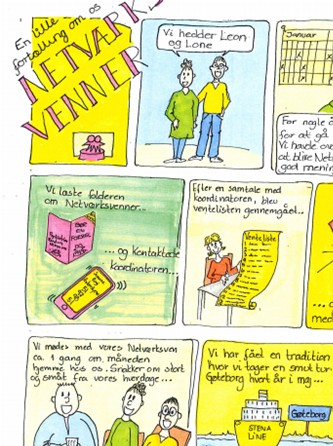 En lille
fortælling om os
NETVÆRKS
VENNER
Vi hedder Leon
og Lone
Januar
For nogle å
for at gå
Vi havde ov
at blive Net
god menin
Vi læste folderen
om Netværksvenner..
...og kontaktede
koordinatoren...
Efter en samtale med
koordinatoren, blev
ventelisten gennemgået..
Venteliste
...
med
Vi mødes med vores Netværksven
ca. 1 gang om måneden
hjemme hos os. Snakker om stort
og småt fra vores hverdage...
Vi har fået en tradition
hvor vi tager en smuttur
Gøteborg hvert år i maj...
Gøteborg
STENA
LINE